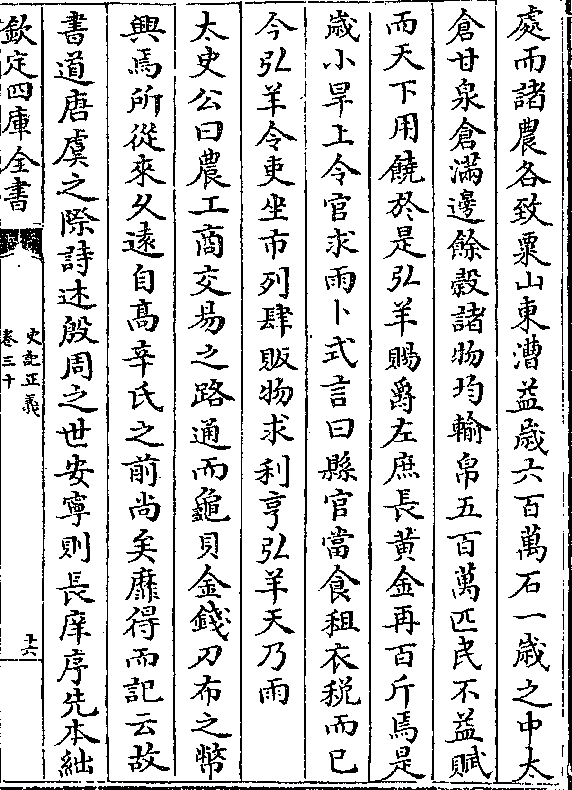 處而諸農各致粟山東漕益歲六百萬石一歲之中太
倉甘泉倉滿邊餘穀諸物均輸帛五百萬匹民不益賦
而天下用饒於是弘羊賜爵左庶長黃金再百斤焉是
歲小旱上令官求雨卜式言曰縣官當食租衣税而已
今弘羊令吏坐市列肆販物求利亨弘羊天乃雨
太史公曰農工商交易之路通而龜貝金錢刀布之幣
興焉所從來久遠自髙辛氏之前尚矣靡得而記云故
書道唐虞之際詩述殷周之世安寧則長庠序先本絀
欽定四庫全書
史記正義
卷三十
十六